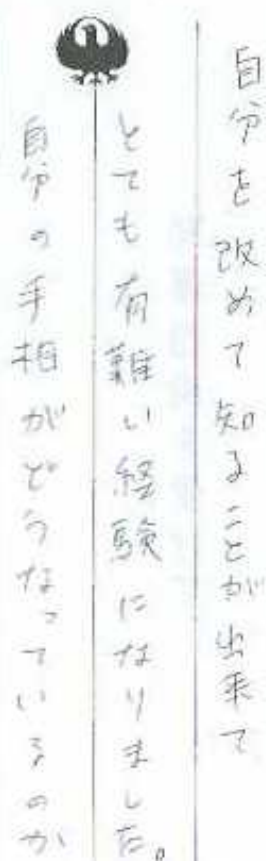 自分を改めて知ることが出来て
とても有難い経験になりました。
自分の手相がどうなっているのか